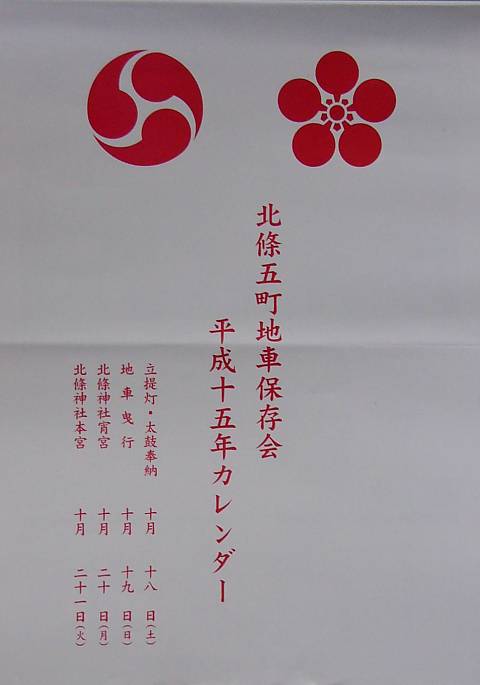 北條五町地車保存会
平成十五年カレンダー
立提灯・太鼓奉納 十月 十八日(土)
地車曳行 十月 十九日(日)
北條神社宵宮 十月 二十日(月)
北條神社本宮 十月 二十一日(火)